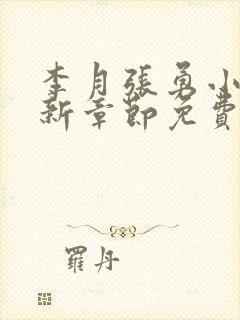 李月張勇小
新章節免費
羅丹